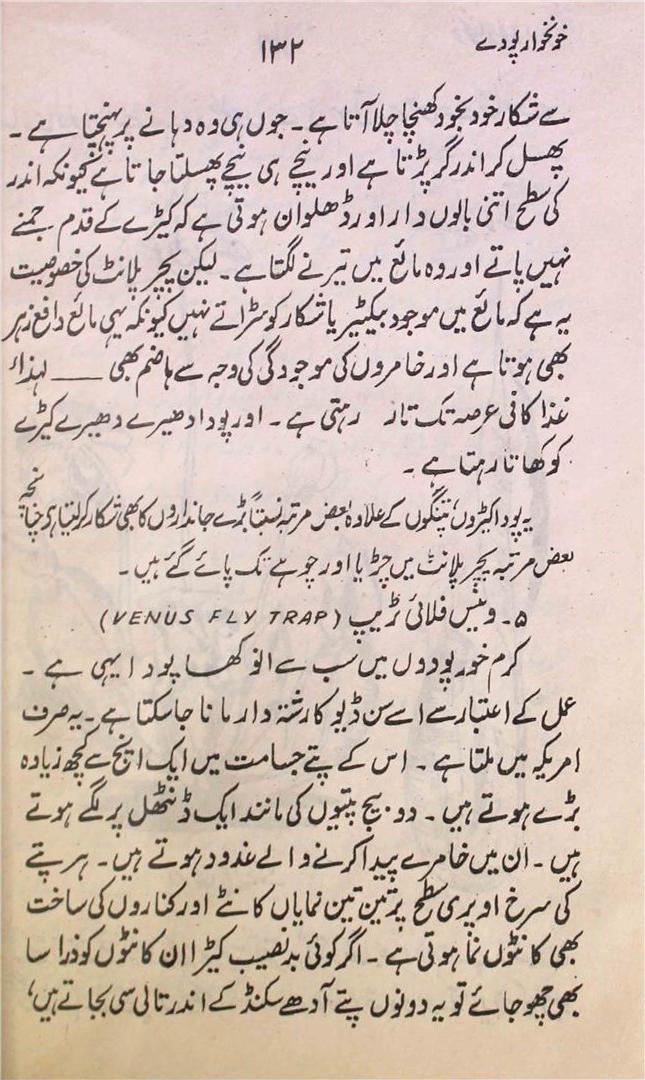 خونخوار پودے
۱۳۲
سے شکار خود بخود کھنچا چلا آتا ہے ۔ جوں ہی وہ دہانے پر پہنچتا ہے ۔
پھسل کر اندر گر پڑتا ہے اور نیچے ہی نیچے پھسلتا جاتا ہے کیونکہ اندر
کی سطح اتنی بالوں دار اور ڈھلوان ہوتی ہے کہ کیڑے کے قدم جمنے
نہیں پاتے اور وہ مائع میں تیرنے لگتا ہے ۔ لیکن پچر پلانٹ کی خصوصیت
یہ ہے کہ مائع میں موجود بیکٹیریا شکار کو سڑاتے نہیں کیونکہ یہی مائع دافع زہر
بھی ہوتا ہے اور خامروں کی موجودگی کی وجہ سے ہاضم بھی ــــــ لہذا
غذا کافی عرصہ تک تازہ رہتی ہے ۔ اور پودا دھیرے دھیرے کیڑے
کو کھاتا رہتا ہے ۔
یہ پودا کیڑوں، پتنگوں کے علاوہ بعض مرتبہ نسبتاً بڑے جانداروں کا بھی شکار کر لیتا ہے چنانچہ
بعض مرتبہ پچر پلانٹ میں چڑیا اور چوہے تک پائے گئے ہیں ۔
۵ ۔ وینس فلائی ٹریپ (VENUS FLY TRAP)
کرم خور پودوں میں سب سے انوکھا پودا یہی ہے ۔
عمل کے اعتبار سے اسے سن ڈیو کا رشتہ دار مانا جا سکتا ہے ۔ یہ صرف
امریکہ میں ملتا ہے ۔ اس کے پتے جسامت میں ایک انچ سے کچھ زیادہ
بڑے ہوتے ہیں ۔ دو بیج پتیوں کی مانند ایک ڈنٹھل پر لگے ہوتے
ہیں ۔ ان میں خامرے پیدا کرنے والے غدود ہوتے ہیں ۔ ہر پتے
کی سرخ اوپری سطح پر تین تین نمایاں کانٹے اور کناروں کی ساخت
بھی کانٹوں نما ہوتی ہے ۔ اگر کوئی بدنصیب کیڑا ان کانٹوں کو ذرا سا
بھی چھو جائے تو یہ دونوں پتے آدھے سکنڈ کے اندر تالی سی بجاتے ہیں،